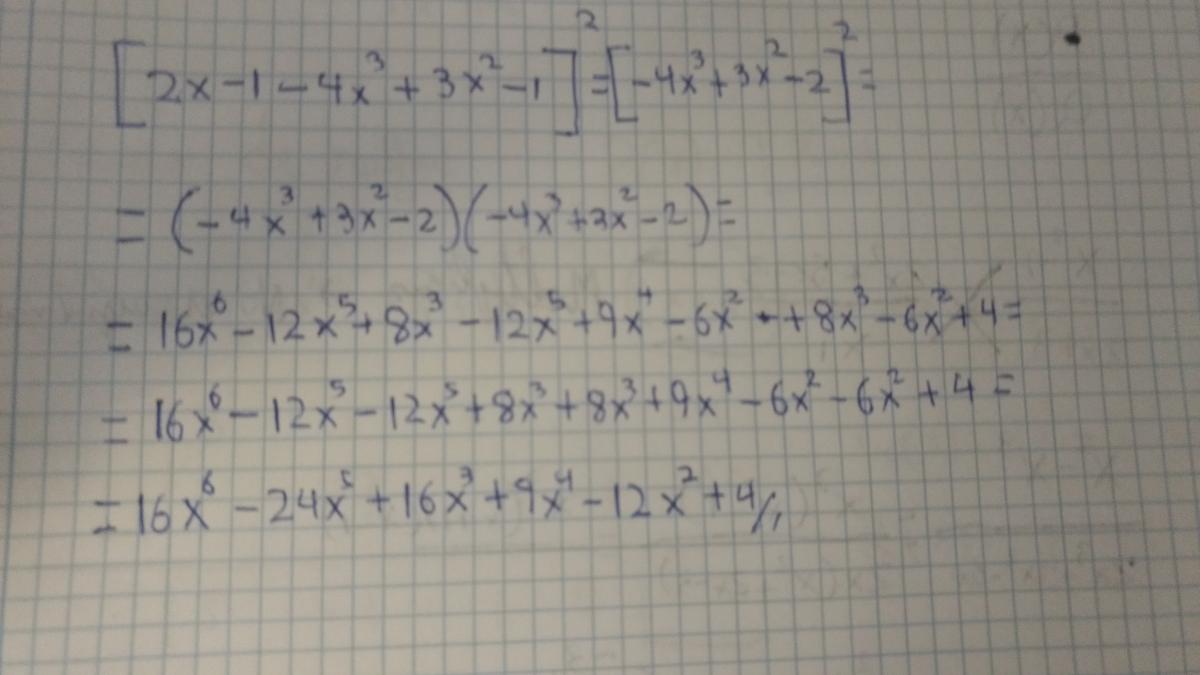 [2x-1-4x³+3x²-1]²=[-4x³+3x²-2]²=
=(-4x³+3x²-2)(-4x³+3x²-2)=
=16x⁶-12x⁵+8x³-12x⁵+9x⁴-6x²-+8x³-6x²+4=
=16x⁶-12x⁵-12x⁵+8x³+8x³+9x⁴-6x²-6x²+4=
=16x⁶-24x⁵+16x³+9x⁴-12x²+4//